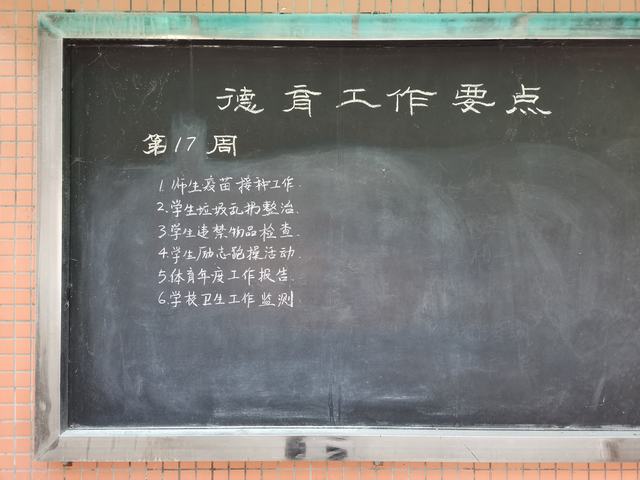 德育工作要点
第17周
1.师生疫苗接种工作.
2.学生垃圾乱扔整治.
3.学生违禁物品检查.
4.学生励志跑操活动.
5.体育年度工作报告.
6.学校卫生工作监测